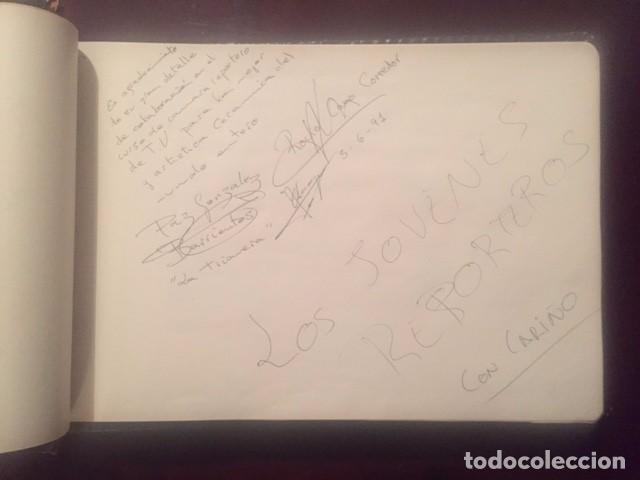 Es agradecimiento
de un gran detalle
de colaboración en el
curso de camara reportero
de TV para la mejor
y artistica Ceramica del
mundo entero
Paz Gonzalez
Barrientos
"La Trianera"
Rafael Corredor
3-6-91
LOS JOVENES
REPORTEROS
CON CARIÑO
todocoleccion